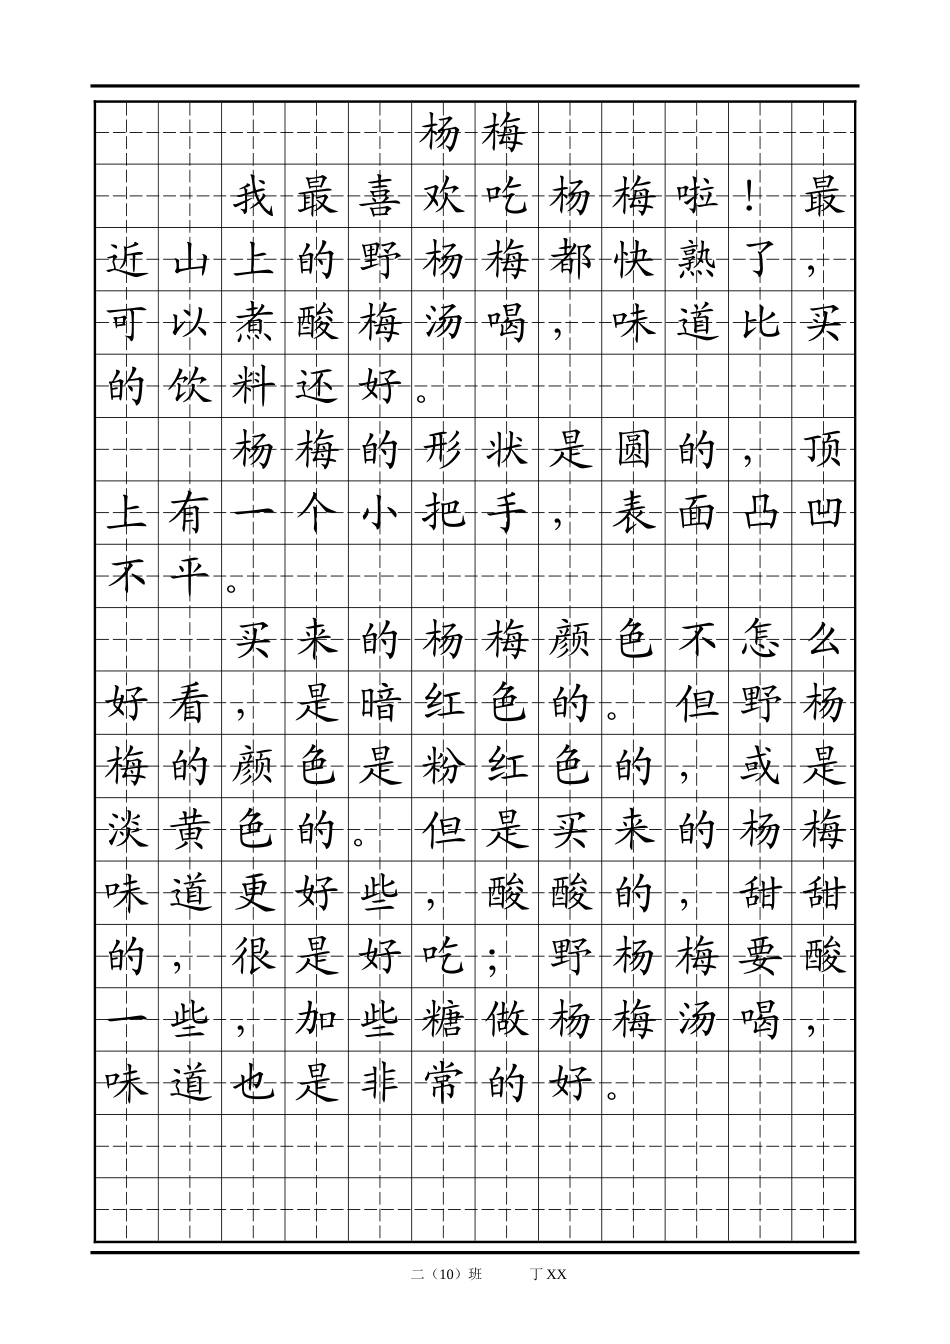 杨梅
我最喜欢吃杨梅啦！最
近山上的野杨梅都快熟了，
可以煮酸梅汤喝，味道比买
的饮料还好。
杨梅的形状是圆的，顶
上有一个小把手，表面凸凹
不平。
买来的杨梅颜色不怎么
好看，是暗红色的。但野杨
梅的颜色是粉红色的，或是
淡黄色的。但是买来的杨梅
味道更好些，酸酸的，甜甜
的，很是好吃；野杨梅要酸
一些，加些糖做杨梅汤喝，
味道也是非常的好。
二（10）班 丁XX